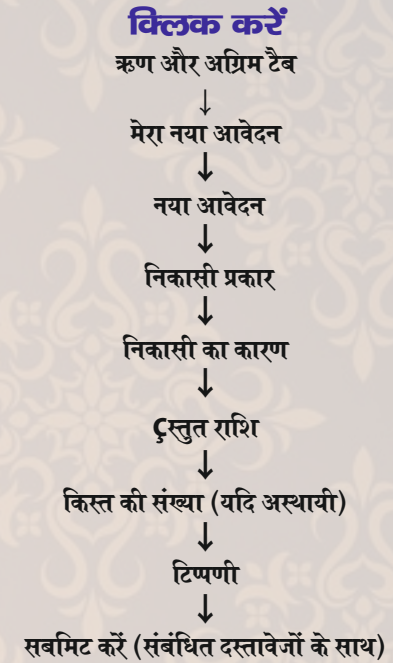 क्लिक करें
ऋण और अग्रिम टैब
↓
मेरा नया आवेदन
↓
नया आवेदन
↓
निकासी प्रकार
↓
निकासी का कारण
↓
Çस्तुत राशि
↓
किस्त की संख्या (यदि अस्थायी)
↓
टिप्पणी
↓
सबमिट करें (संबंधित दस्तावेजों के साथ)